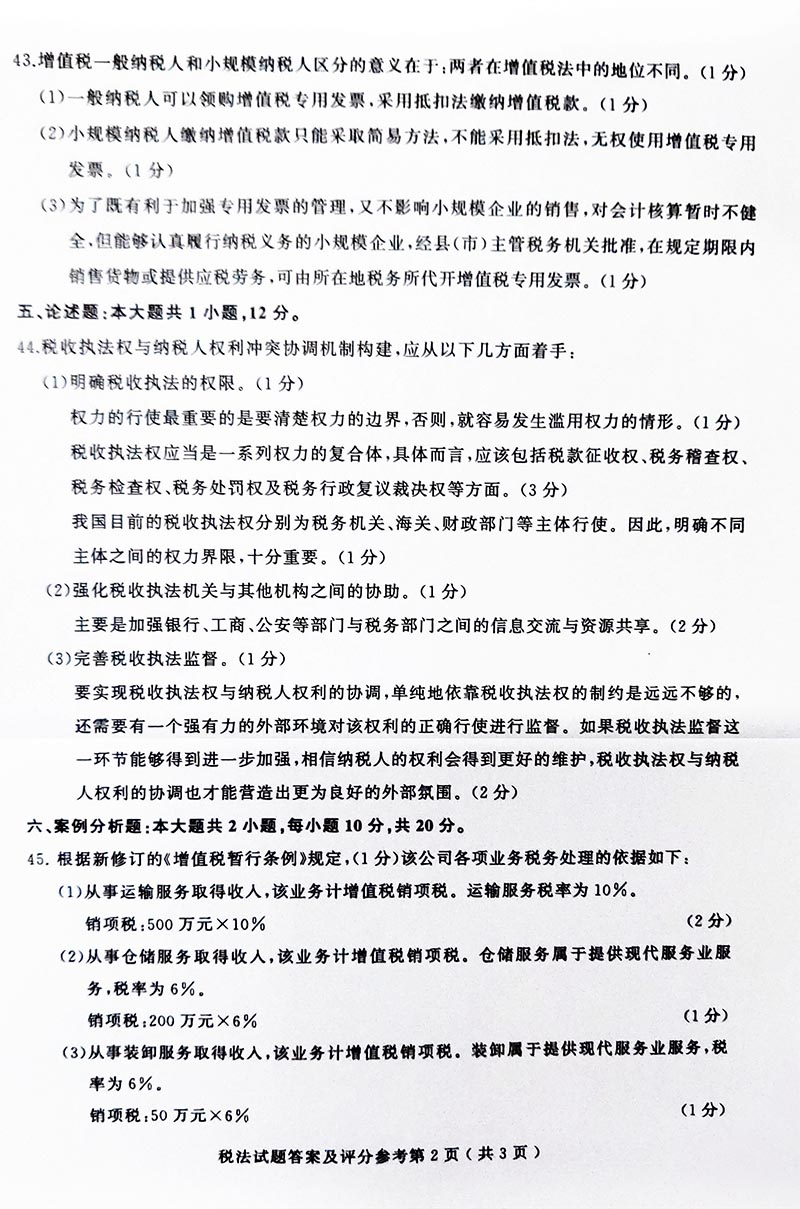 43.增值税一般纳税人和小规模纳税人区分的意义在于:两者在增值税法中的地位不同。(1 分)
(1)一般纳税人可以领购增值税专用发票,采用抵扣法缴纳增值税款。(1 分)
(2)小规模纳税人缴纳增值税款只能采取简易方法,不能采用抵扣法,无权使用增值税专用
发票。(1 分)
(3)为了既有利于加强专用发票的管理,又不影响小规模企业的销售,对会计核算暂时不健
全,但能够认真履行纳税义务的小规模企业,经县(市)主管税务机关批准,在规定期限内
销售货物或提供应税劳务,可由所在地税务所代开增值税专用发票。(1 分)
五、论述题:本大题共 1 小题,12 分。
44.税收执法权与纳税人权利冲突协调机制构建,应从以下几方面着手:
(1)明确税收执法的权限。(1 分)
权力的行使最重要的是要清楚权力的边界,否则,就容易发生滥用权力的情形。(1 分)
税收执法权应当是一系列权力的复合体,具体而言,应该包括税款征收权、税务稽查权、
税务检查权、税务处罚权及税务行政复议裁决权等方面。(3 分)
我国目前的税收执法权分别为税务机关、海关、财政部门等主体行使。因此,明确不同
主体之间的权力界限,十分重要。(1 分)
(2)强化税收执法机关与其他机构之间的协助。(1 分)
主要是加强银行、工商、公安等部门与税务部门之间的信息交流与资源共享。(2 分)
(3)完善税收执法监督。(1 分)
要实现税收执法权与纳税人权利的协调,单纯地依靠税收执法权的制约是远远不够的,
还需要有一个强有力的外部环境对该权利的正确行使进行监督。如果税收执法监督这
一环节能够得到进一步加强,相信纳税人的权利会得到更好的维护,税收执法权与纳税
人权利的协调也才能营造出更为良好的外部氛围。(2 分)
六、案例分析题:本大题共 2 小题,每小题 10 分,共 20 分。
45. 根据新修订的《增值税暂行条例》规定,(1 分)该公司各项业务税务处理的依据如下:
(1)从事运输服务取得收入,该业务计增值税销项税。运输服务税率为 10%。
销项税:500 万元×10% (2 分)
(2)从事仓储服务取得收入,该业务计增值税销项税。仓储服务属于提供现代服务业服
务,税率为 6%。
销项税:200 万元×6% (1 分)
(3)从事装卸服务取得收入,该业务计增值税销项税。装卸属于提供现代服务业服务,税
率为 6%。
销项税:50 万元×6% (1 分)
税法试题答案及评分参考第 2 页(共 3 页)